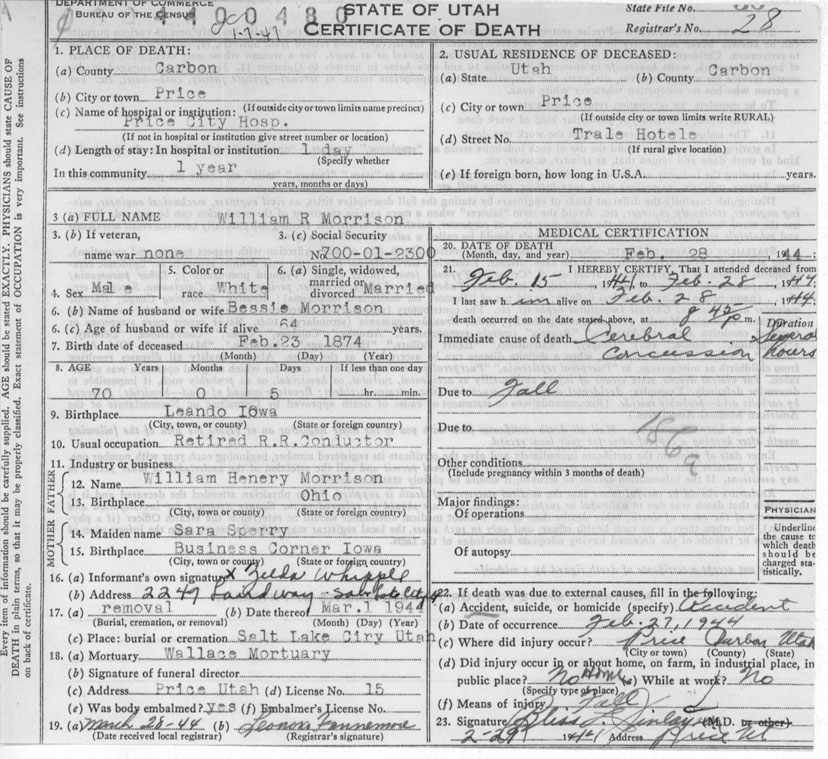 DEPARTMENT OF COMMERCE
BUREAU OF THE CENSUS
1-7-47
STATE OF UTAH
CERTIFICATE OF DEATH
State File No.
Registrar's No. 28
Every item of information should be carefully supplied. AGE should be stated EXACTLY. PHYSICIANS should state CAUSE OF
DEATH in plain terms, so that it may be properly classified. Exact statement of OCCUPATION is very important. See instructions
on back of certificate.
1. PLACE OF DEATH:
(a) County Carbon
(b) City or town Price
(If outside city or town limits name precinct)
(c) Name of hospital or institution:
Price City Hosp.
(If not in hospital or institution give street number or location)
(d) Length of stay: In hospital or institution 1 day
(Specify whether
In this community 1 year
years, months or days)
2. USUAL RESIDENCE OF DECEASED:
(a) State Utah (b) County Carbon
(c) City or town Price
(If outside city or town limits write RURAL)
(d) Street No. Trale Hotele
(If rural give location)
(e) If foreign born, how long in U.S.A. years.
3 (a) FULL NAME William R Morrison
3. (b) If veteran,
name war none
3. (c) Social Security
No. 700-01-2300
4. Sex Male
5. Color or
race White
6. (a) Single, widowed,
married or
divorced Married
6. (b) Name of husband or wife Bessie Morrison
6. (c) Age of husband or wife if alive 64 years.
7. Birth date of deceased Feb.23 1874
(Month) (Day) (Year)
8. AGE Years Months Days If less than one day
70 0 5 hr. min.
9. Birthplace Leando Iowa
(City, town, or county) (State or foreign country)
10. Usual occupation Retired R.R.Conductor
11. Industry or business
FATHER
12. Name William Henery Morrison
13. Birthplace Ohio
(City, town or county) (State or foreign country)
MOTHER
14. Maiden name Sara Sperry
15. Birthplace Business Corner Iowa
(City, town or county) (State or foreign country)
16. (a) Informant's own signature x Zelda Whipple
(b) Address 2247
17. (a) removal (b) Date thereof Mar.1 1944
(Burial, cremation, or removal) (Month) (Day) (Year)
(c) Place: burial or cremation Salt Lake Ciry Utah
18. (a) Mortuary Wallace Mortuary
(b) Signature of funeral director
(c) Address Price Utah (d) License No. 15
(e) Was body embalmed? yes (f) Embalmer's License No.
19. (a) March 28-44 (b) Leonora
(Date received local registrar) (Registrar's signature)
MEDICAL CERTIFICATION
20. DATE OF DEATH
(Month, day, and year) Feb. 28 1944:
21. I HEREBY CERTIFY, That I attended deceased from
Feb. 15, 1944 to Feb. 28, 1944.
I last saw him alive on Feb. 28, 1944.
death occurred on the date stated above, at 8 45 p m.
Duration
Immediate cause of death Cerebral Several
Concussion hours
Due to Fall
Due to
186a
Other conditions
(Include pregnancy within 3 months of death)
Major findings:
Of operations
Of autopsy
PHYSICIAN
Underline
the cause to
which death
should be
charged sta-
tistically.
22. If death was due to external causes, fill in the following:
(a) Accident, suicide, or homicide (specify) Accident
(b) Date of occurrence Feb. 27, 1944
(c) Where did injury occur? Price Carbon Utah
(City or town) (County) (State)
(d) Did injury occur in or about home, on farm, in industrial place, in
public place? No Home (e) While at work? No
(Specify type of place)
(f) Means of injury Fall
23. Signature (M.D. or other)
2-29 1944 Address Price Ut